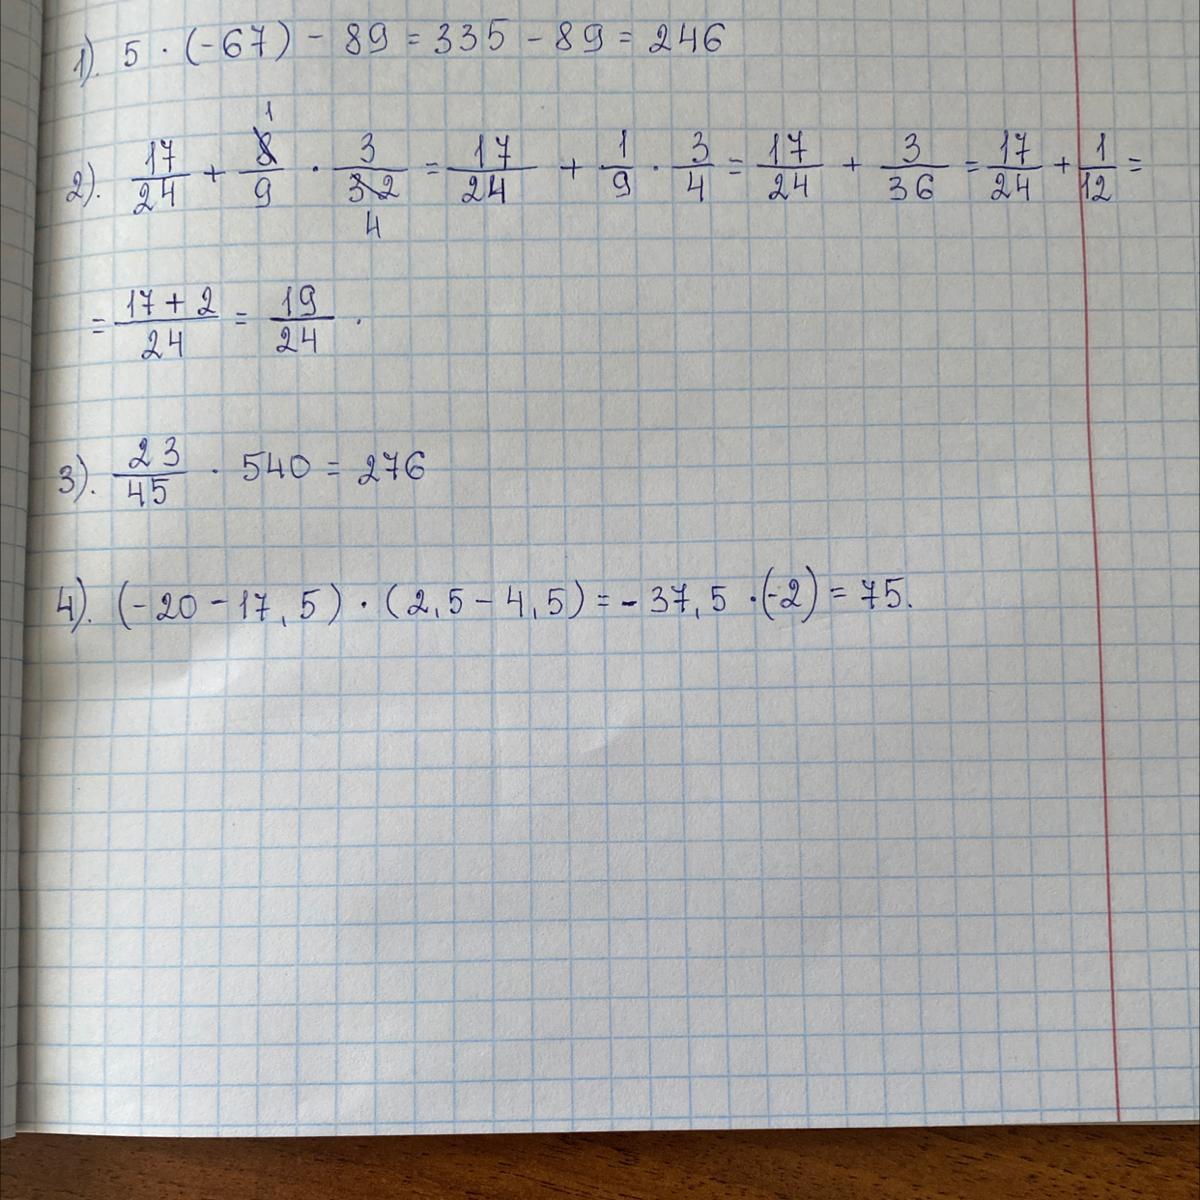 1). 5 · (-67) - 89 = 335 - 89 = 246
2). 17/24 + 8/9 · 3/32 = 17/24 + 1/9 · 3/4 = 17/24 + 3/36 = 17/24 + 1/12 =
= 17 + 2/24 = 19/24 .
3). 23/45 · 540 = 276
4). (-20 - 17,5) · (2,5 - 4,5) = - 37,5 · (-2) = 75.